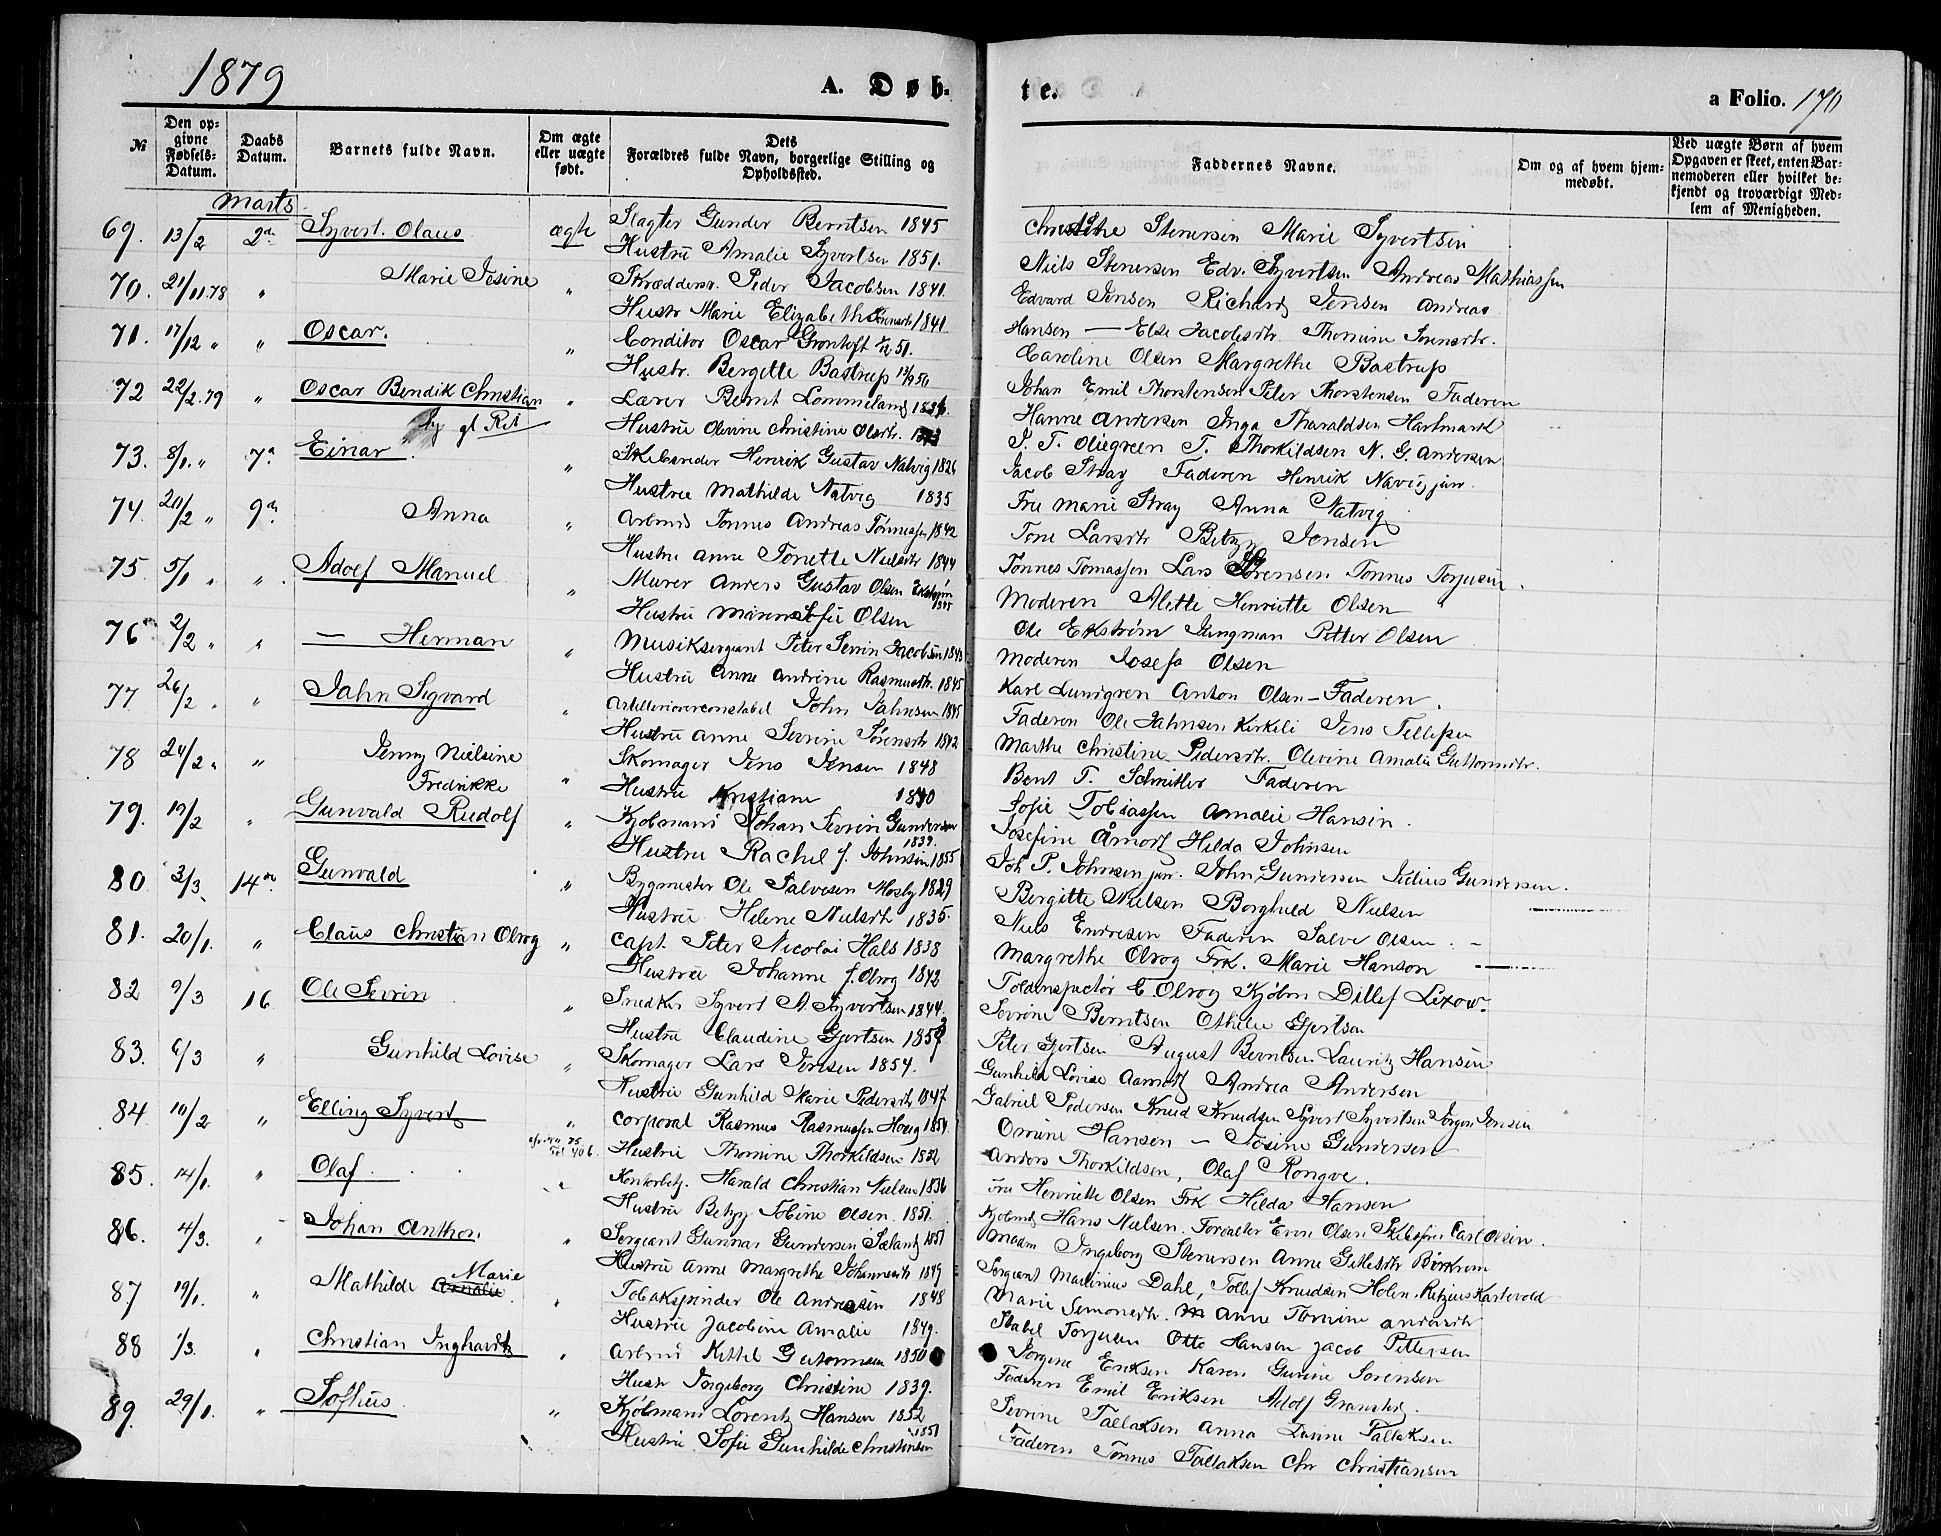 1879
A. Døb-
te.
a Folio. 170
№
Den op-
givne
Fødsels-
Datum.
Daabs
Datum.
Barnets fulde Navn.
Om ægte
eller uægte
født.
Dets
Forældres fulde Navn, borgerlige Stilling og
Opholdssted.
Faddernes Navne.
Om og af hvem hjem-
medøbt.
Ved uægte Børn af hvem
Opgaven er skeet, enten Bar-
nemoderen eller hvilket be-
kjendt og troværdigt Med-
lem af Menigheden.
Marts
69. 13/2 2den Syvert Olaus ægte Slagter Gunder Berntsen 1845
Hustru Amalie Syvertsen 1851.
Stenersen Marie Syvertsen
Niels Stenersen Edv. Syvertsen Andreas Mathiassen
70. 21/11.78 " Marie Josine " Skrædder Peder Jacobsen 1841.
Hustr Marie Elizabeth 1841
Edvard Jensen Richard Jensen Andreas
Hansen — Else Jacobsdtr Thomine
71. 17/12 " " Oscar. " Conditor Oscar Grontoft 51.
Hustr. Bergette Bastrup
Caroline Olsen Margrethe Bastrup
Johan Emil Thorstensen Peter Thorstensen Faderen
72 22/2.79 " Oscar Bendik Christian " Lærer Bernt Lommeland
Hustru Olevine Christine Olsdtr.
Hanne Andersen Inga Tharaldsen Hartmark
J. T. Oliegreen T. Thorkildsen N. G. Andersen
73. 8/1. " 7de Einar. " Skibsreder Henrik Gustav Natvig 1826
Hustru Mathilde Natvig 1835
Jacob Stray Faderen Henrik Navig jun.
Fru Marie Stray Anna Natvig
74. 20/2 " 9de Anna " Arbmd Tønnes Andreas Tønnessen 1842
Hustru Anne Tonette Nielsdtr 1844
Tone Larsdtr Betzy Jensen
Tønnes Tomassen Lars Sørensen Tønnes Torjusen.
75. 5/1 " " Adolf Manuel " Murer Anders Gustav Olsen Ekstrøm 1845
Hustru Maren Sofie Olsen
Moderen Alette Henriette Olsen
Ole Ekstrøm Jungman Petter Olsen
76 2/2 " " — Herman " Musiksergeant Peter Sevrin Jacobsen 1843
Hustru Anne Andrine Rasmusdtr. 1845
Moderen Josefa Olsen
Karl Lundgren Anton Olsen - Faderen.
77 26/2 " " Jahn Sigvard " Artilleriovconstabel John Jahnsen 1845
Hustru Anne Sevrine Sørensdtr 1842
Faderen Ole Jahnsen Kirkeli Jens Tellefsen
Marthe Christine Pedersdtr. Olevine Amalie Guttormsdtr.
78 24/2 " " Jenny Nielsine
Fredrikke " Skomager Jens Jensen 1848
Hustru Kristiane
Bent T. Schnitler Faderen
Sofie Tobiassen Amalie Hansen.
79. 19/2 " Gunvald Rudolf " Kjøbmand Johan Sevrin Gundersen 1839.
Hustru Rachel f. Johnsen 1855
Josefine Åmodt Hilda Johnsen
Joh. P. Johnsen jun. John Gundersen Julius Gundersen.
80. 3/3. 14de Gunvald " Bygmester Ole Salvesen Mosby 1829
Hustru Helene Nielsdtr 1835.
Bergitte Nielsen Borghild Nielsen
Niels Endresen Faderen Salve Olsen. —
81. 20/1. " Claus Christian Olrog " Capt. Peter Nicolai Hals 1838
Hustru Johanne f. Olrog 1842
Margrethe Olrog Frk. Marie Hanson
Toldinspectør C Olrog Kjøbm Ditlef Lexow.
82 9/3 16 Ole Sevrin " Snedker Syvert A. Syvertsen 1844.
Hustru Claudine Gjertsen
Sevrine Berntsen Othelie Gjertsen
Peter Gjertsen August Berntsen Lauritz Hansen
83. 6/3 " Gunhild Lovise " Skomager Lars Jensen 1854.
Hustru Gunhild Marie Pedersdtr 1847
Gunhild Lovise Aamodt Andrea Andersen
Gabriel Pedersen Knud Knudsen Syvert Syvertsen Jørgen Jensen
84. 10/2 " Elling Syvert " Corporal Rasmus Rasmussen Houg 1854.
Hustru Thomine Thorkildsen 1852
Osmine Hansen — Josine Gundersen
Anders Thorkildsen, Olaf Rongve.
85. 14/1. " Olaf " Kontorbetj. Harald Christian Nielsen 1836
Hustru Betzy Tobine Olsen 1851.
Fru Henriette Olsen Frk Hilda Hansen
Kjøbmd Hans Nielsen. Forvalter Even Olsen Skibsfører Carl Olsen.
86. 4/3. " Johan Anthon. " Sergeant Gunnar Gundersen Sæland 1851
Hustru Anne Margrethe Johannesdtr 1849
Madm Ingeborg Stenersen Anne Birkrem
Sergeant Martinius Dahl, Tollef Knudsen Holen. Retzius Kartevold
87 19/1. " Mathilde Amalie Marie " Tobakspinder Ole Andreasen 1848
Hustru Jacobine Amalie 1849.
Marie Simonsdtr. Anne Tomine Andersdtr
Torjusen Otto Hansen Jacob Pettersen
88 1/3. " Christian Inghardt " Arbmd Kittel Guttormsen 1850
Hustr Ingeborg Christine 1839.
Jorgine Eriksen Karen Gurine Sørensen
Faderen Emil Eriksen Adolf
89. 29/1. " Sofhus " Kjøbmand Lorentz Hansen 1852
Hustru Sofie Gunhilde Christensen 1851
Sevrine Tallaksen Anna Tallaksen
Faderen Tønnes Tallaksen Chr Christiansen